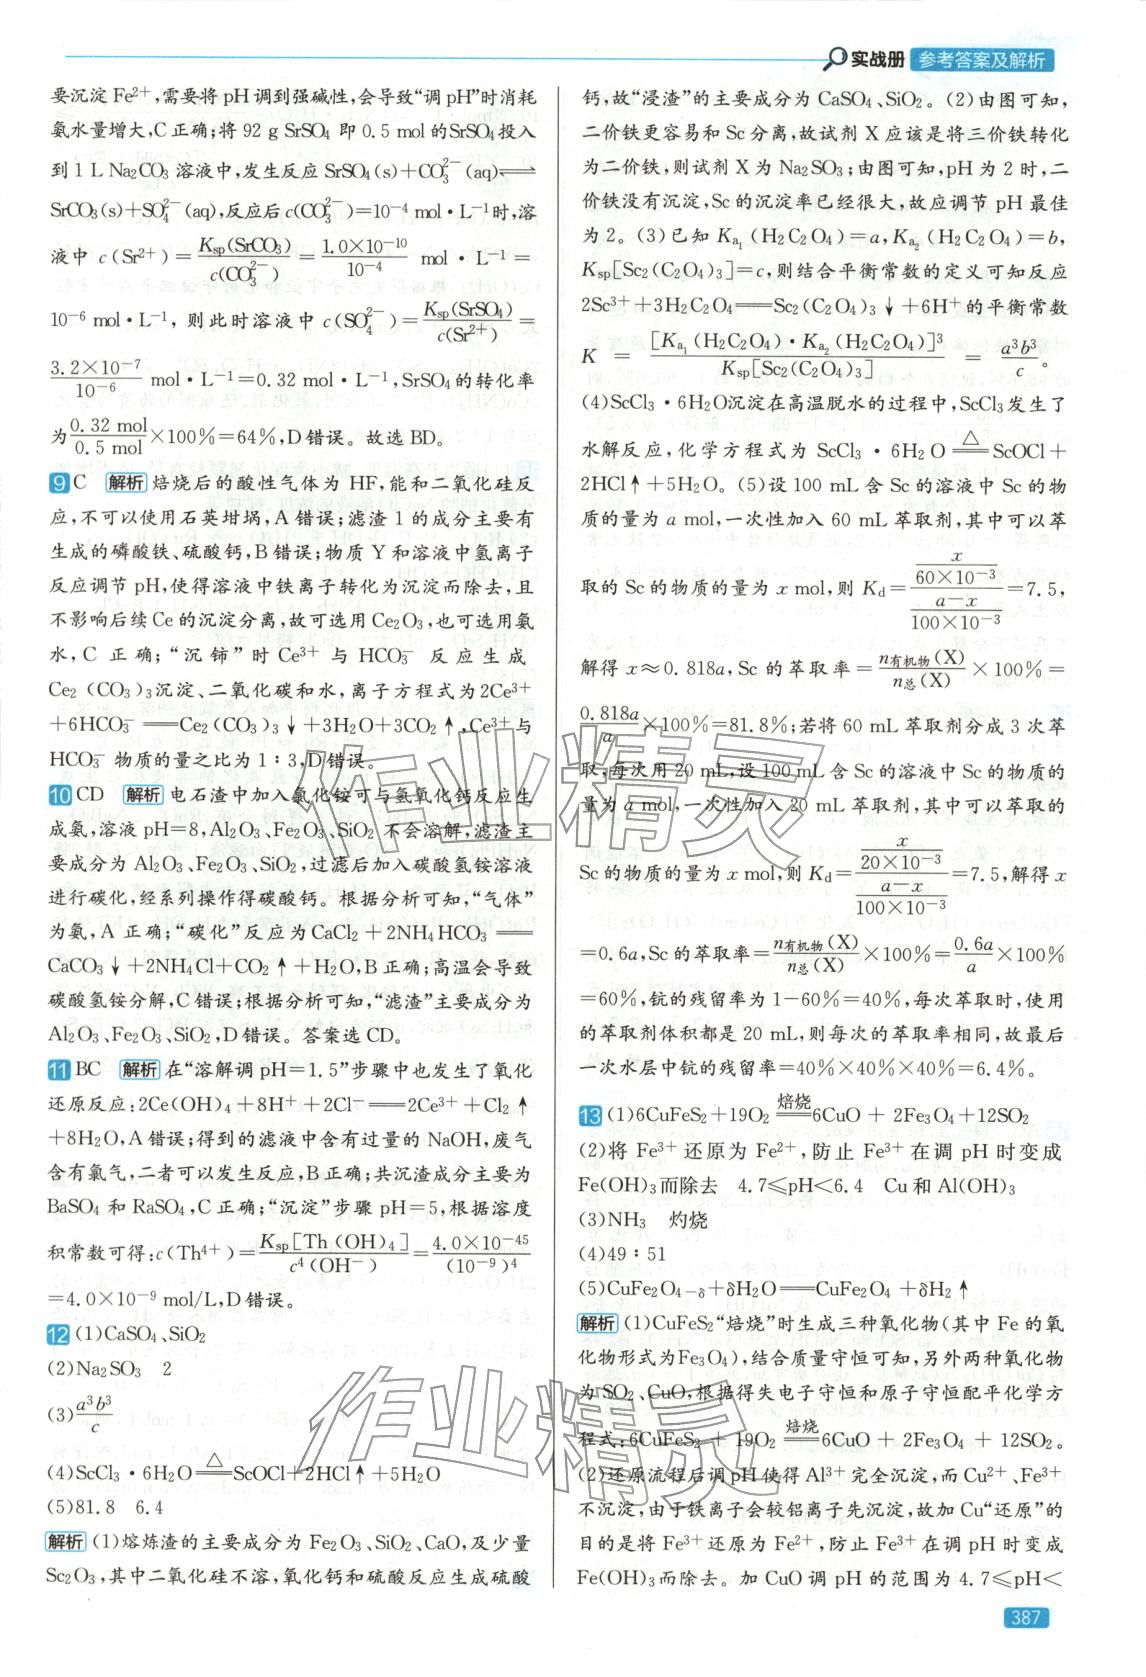 实战册 参考答案及解析
要沉淀 Fe²⁺,需要将 pH 调到强碱性,会导致“调 pH”时消耗
氨水量增大,C 正确;将 92 g SrSO₄ 即 0.5 mol 的 SrSO₄ 投入
到 1 L Na₂CO₃ 溶液中,发生反应 SrSO₄(s)+CO₃²⁻(aq)⇌
SrCO₃(s)+SO₄²⁻(aq),反应后 c(CO₃²⁻)=10⁻⁴ mol·L⁻¹ 时,溶
液中 c(Sr²⁺)=Ksp(SrCO₃)/c(CO₃²⁻)=1.0×10⁻¹⁰/10⁻⁴ mol·L⁻¹=
10⁻⁶ mol·L⁻¹,则此时溶液中 c(SO₄²⁻)=Ksp(SrSO₄)/c(Sr²⁺)=
3.2×10⁻⁷/10⁻⁶ mol·L⁻¹=0.32 mol·L⁻¹,SrSO₄ 的转化率
为 0.32 mol/0.5 mol×100%=64%,D 错误。故选 BD。
9 C 解析 焙烧后的酸性气体为 HF,能和二氧化硅反
应,不可以使用石英坩埚,A 错误;滤渣 1 的成分主要有
生成的磷酸铁、硫酸钙,B 错误;物质 Y 和溶液中氢离子
反应调节 pH,使得溶液中铁离子转化为沉淀而除去,且
不影响后续 Ce 的沉淀分离,故可选用 Ce₂O₃,也可选用氨
水,C 正确;“沉铈”时 Ce³⁺ 与 HCO₃⁻ 反应生成
Ce₂(CO₃)₃沉淀、二氧化碳和水,离子方程式为2Ce³⁺
+6HCO₃⁻══Ce₂(CO₃)₃↓+3H₂O+3CO₂↑,Ce³⁺与
HCO₃⁻ 物质的量之比为 1∶3,D 错误。
10 CD 解析 电石渣中加入氯化铵可与氢氧化钙反应生
成氨,溶液 pH=8,Al₂O₃、Fe₂O₃、SiO₂ 不会溶解,滤渣主
要成分为 Al₂O₃、Fe₂O₃、SiO₂,过滤后加入碳酸氢铵溶液
进行碳化,经系列操作得碳酸钙。根据分析可知,“气体”
为氨,A 正确;“碳化”反应为 CaCl₂+2NH₄HCO₃══
CaCO₃↓+2NH₄Cl+CO₂↑+H₂O,B 正确;高温会导致
碳酸氢铵分解,C 错误;根据分析可知,“滤渣”主要成分为
Al₂O₃、Fe₂O₃、SiO₂,D 错误。答案选 CD。
11 BC 解析 在“溶解调 pH=1.5”步骤中也发生了氧化
还原反应:2Ce(OH)₄+8H⁺+2Cl⁻══2Ce³⁺+Cl₂↑
+8H₂O,A 错误;得到的滤液中含有过量的 NaOH,废气
含有氯气,二者可以发生反应,B 正确;共沉渣成分主要为
BaSO₄ 和 RaSO₄,C 正确;“沉淀”步骤 pH=5,根据溶度
积常数可得:c(Th⁴⁺)=Ksp[Th(OH)₄]/c⁴(OH⁻)=4.0×10⁻⁴⁵/(10⁻⁹)⁴
=4.0×10⁻⁹ mol/L,D 错误。
12 (1)CaSO₄、SiO₂
(2)Na₂SO₃ 2
(3)a³b³/c
(4)ScCl₃·6H₂O══△══ScOCl+2HCl↑+5H₂O
(5)81.8 6.4
解析 (1)熔炼渣的主要成分为 Fe₂O₃、SiO₂、CaO,及少量
Sc₂O₃,其中二氧化硅不溶,氧化钙和硫酸反应生成硫酸
钙,故“浸渣”的主要成分为 CaSO₄、SiO₂。(2)由图可知,
二价铁更容易和 Sc 分离,故试剂 X 应该是将三价铁转化
为二价铁,则试剂 X 为 Na₂SO₃;由图可知,pH 为 2 时,二
价铁没有沉淀,Sc的沉淀率已经很大,故应调节 pH 最佳
为 2。(3)已知 Ka₁(H₂C₂O₄)=a,Ka₂(H₂C₂O₄)=b,
Ksp[Sc₂(C₂O₄)₃]=c,则结合平衡常数的定义可知反应
2Sc³⁺+3H₂C₂O₄══Sc₂(C₂O₄)₃↓+6H⁺的平衡常数
K=[Ka₁(H₂C₂O₄)·Ka₂(H₂C₂O₄)]³/Ksp[Sc₂(C₂O₄)₃]=a³b³/c。
(4)ScCl₃·6H₂O沉淀在高温脱水的过程中,ScCl₃发生了
水解反应,化学方程式为 ScCl₃·6H₂O══△══ScOCl+
2HCl↑+5H₂O。(5)设 100 mL 含 Sc 的溶液中 Sc 的物
质的量为 a mol,一次性加入 60 mL 萃取剂,其中可以萃
取的 Sc 的物质的量为 x mol,则 Kd=(x/(60×10⁻³))/((a−x)/(100×10⁻³))=7.5,
解得 x≈0.818a,Sc 的萃取率=n有机物(X)/n总(X)×100%=
0.818a/a×100%=81.8%;若将 60 mL 萃取剂分成 3 次萃
取,每次用 20 mL,设 100 mL 含 Sc 的溶液中 Sc 的物质的
量为 a mol,一次性加入 20 mL 萃取剂,其中可以萃取的
Sc 的物质的量为 x mol,则 Kd=(x/(20×10⁻³))/((a−x)/(100×10⁻³))=7.5,解得 x
=0.6a,Sc 的萃取率=n有机物(X)/n总(X)×100%=0.6a/a×100%
=60%,钪的残留率为 1−60%=40%,每次萃取时,使用
的萃取剂体积都是 20 mL,则每次的萃取率相同,故最后
一次水层中钪的残留率=40%×40%×40%=6.4%。
13 (1)6CuFeS₂+19O₂══焙烧══6CuO+2Fe₃O₄+12SO₂
(2)将 Fe³⁺ 还原为 Fe²⁺,防止 Fe³⁺ 在调 pH 时变成
Fe(OH)₃而除去 4.7≤pH<6.4 Cu 和 Al(OH)₃
(3)NH₃ 灼烧
(4)49∶51
(5)CuFe₂O₄₋δ+δH₂O══CuFe₂O₄+δH₂↑
解析 (1)CuFeS₂“焙烧”时生成三种氧化物(其中 Fe 的氧
化物形式为Fe₃O₄),结合质量守恒可知,另外两种氧化物
为 SO₂、CuO,根据得失电子守恒和原子守恒配平化学方
程式:6CuFeS₂+19O₂══焙烧══6CuO+2Fe₃O₄+12SO₂。
(2)还原流程后调 pH 使得 Al³⁺ 完全沉淀,而 Cu²⁺、Fe³⁺
不沉淀,由于铁离子会较铝离子先沉淀,故加 Cu“还原”的
目的是将 Fe³⁺ 还原为 Fe²⁺,防止 Fe³⁺ 在调 pH 时变成
Fe(OH)₃而除去。加 CuO 调 pH 的范围为 4.7≤pH<
387
作业精灵
作业精灵